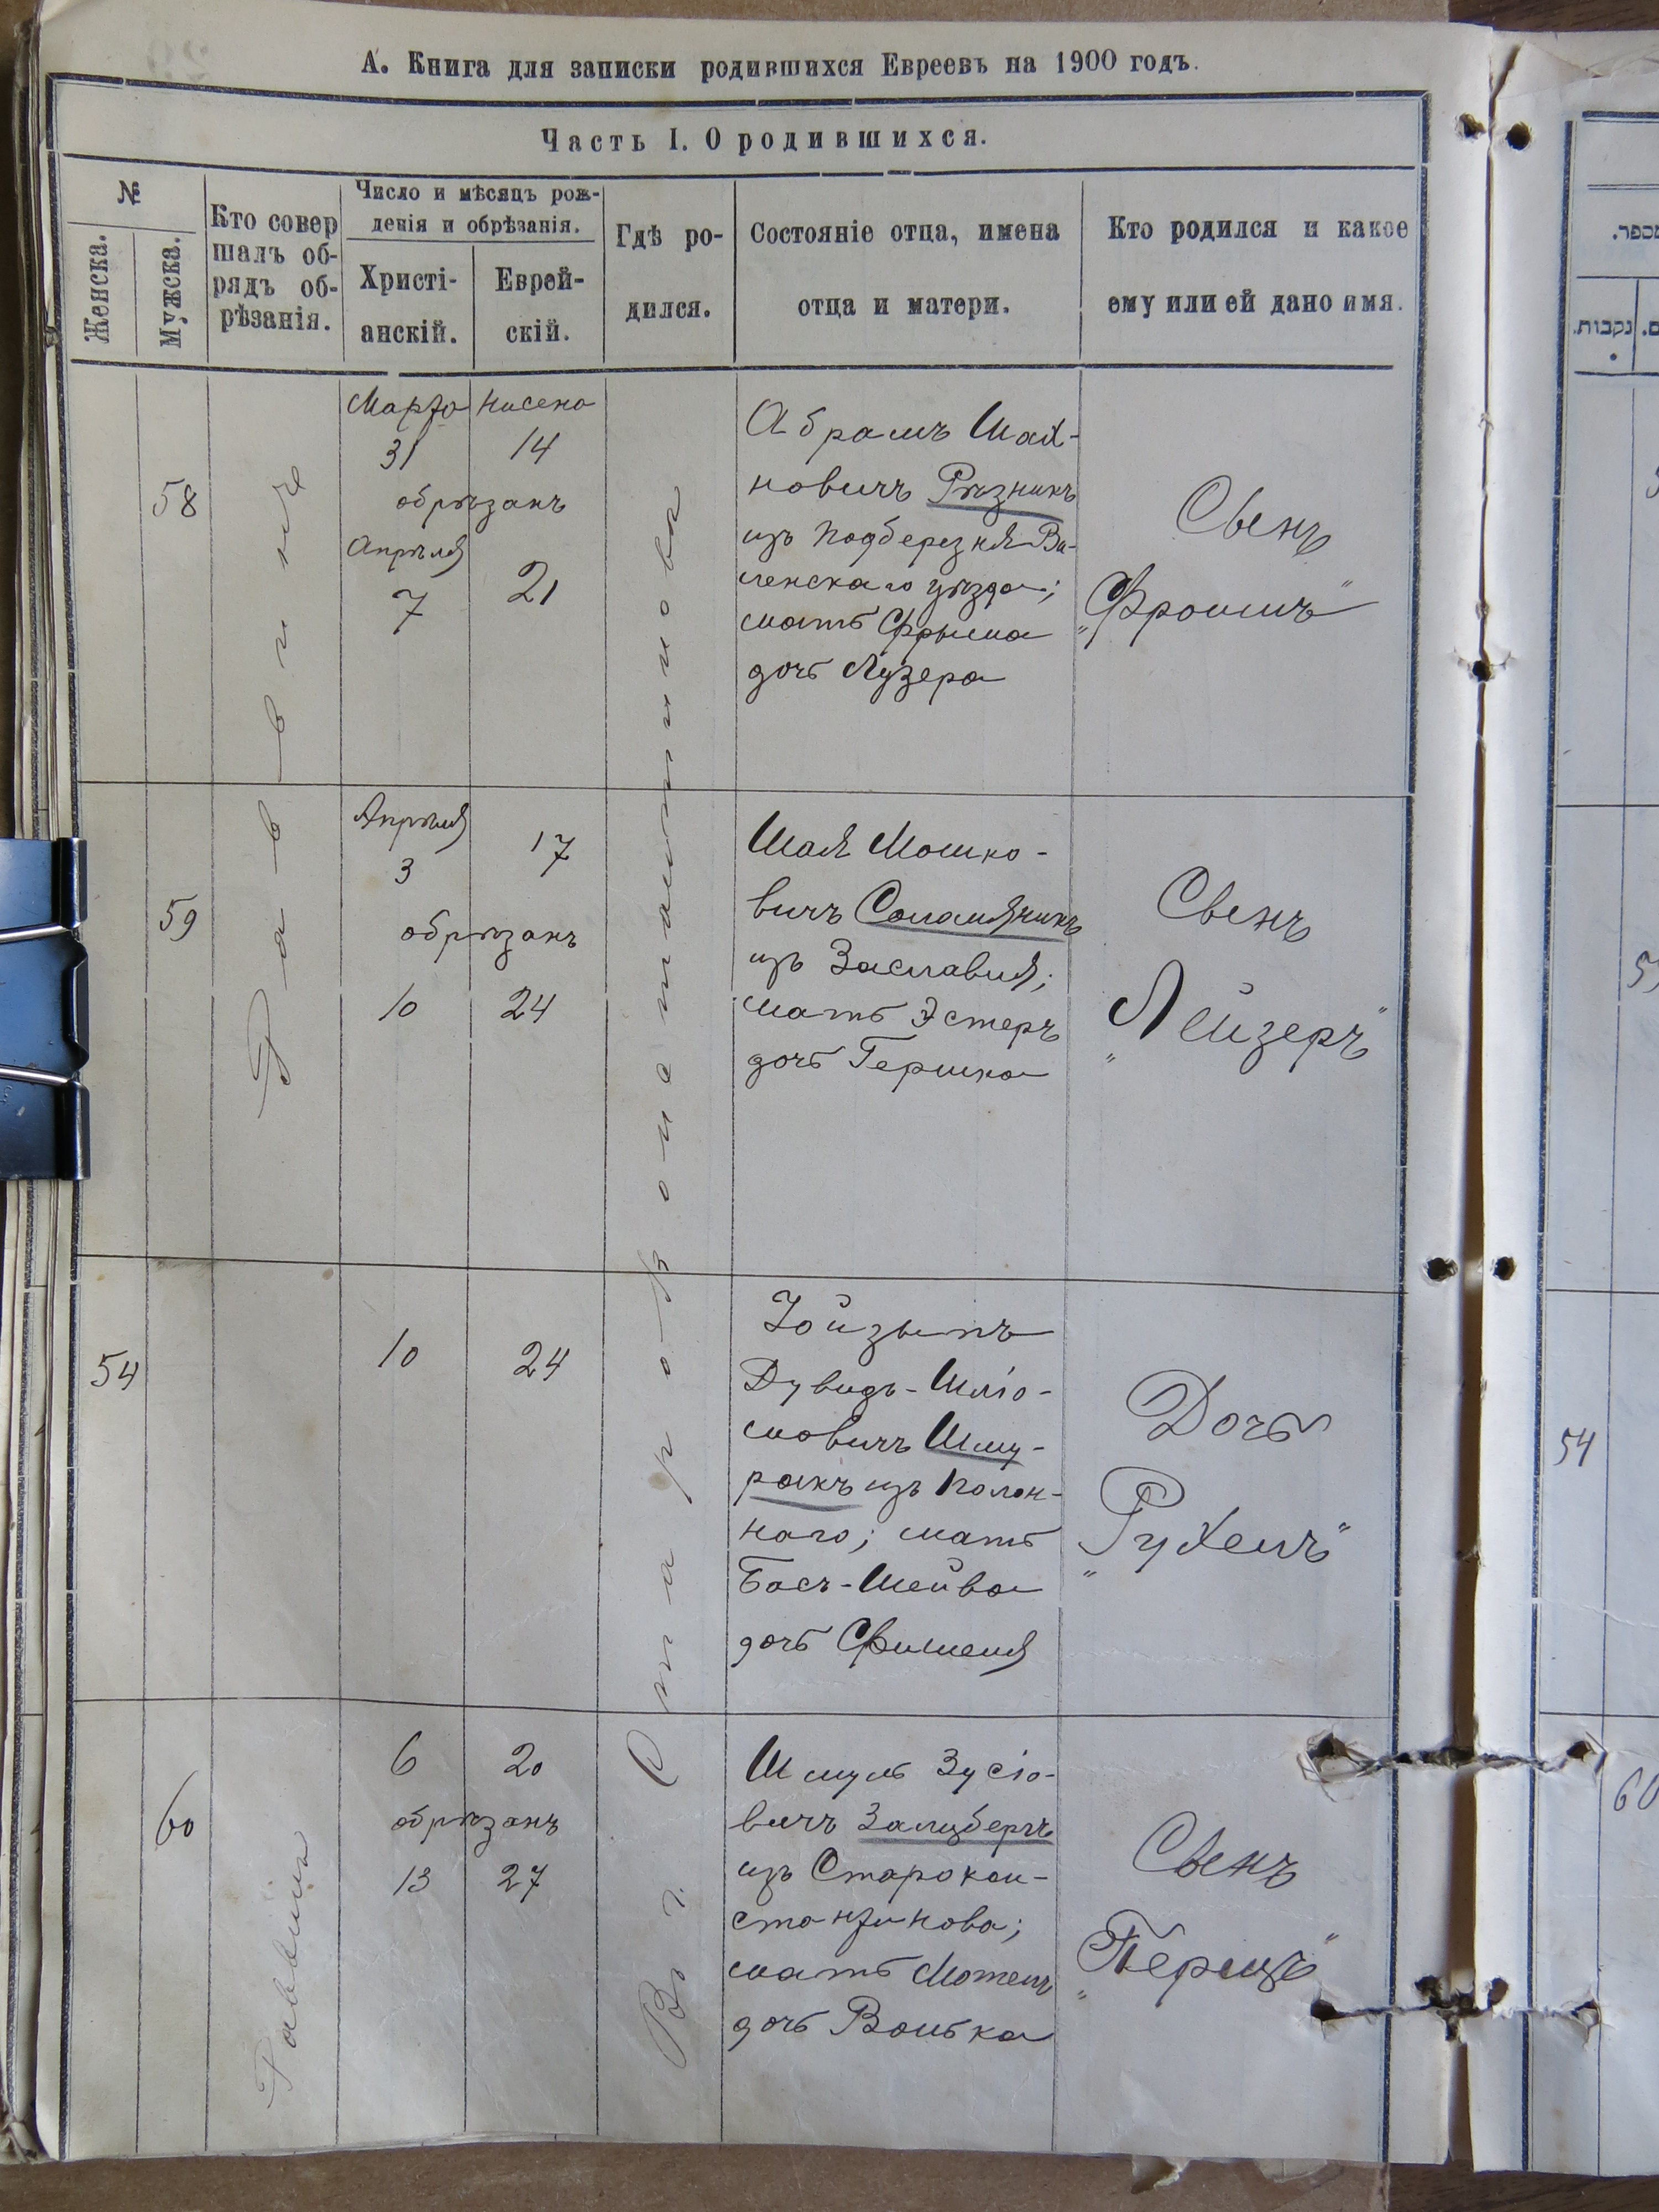 А. Книга для записки родившихся Евреевъ на 1900 годъ.
Часть I. О родившихся.
№
Женска.
Мужска.
Кто совер
шалъ об-
рядъ об-
рѣзанія.
Число и мѣсяцъ рож-
денія и обрѣзанія.
Христі-
анскій.
Еврей-
скій.
Гдѣ ро-
дился.
Состояніе отца, имена
отца и матери.
Кто родился и какое
ему или ей дано имя.
Раввинъ
Въ г. Староконстантиновѣ
58
Марта Нисена
31 14
обрѣзанъ
Апрѣля
7 21
Абрамъ Шая-
новичъ Рѣзникъ
изъ Подберезья Ви-
ленскаго уѣзда;
мать Фрыма
дочь Лузера
Сынъ
„Фроимъ"
59
Апрѣля
3 17
обрѣзанъ
10 24
Шая Мошко-
вичъ Соламяникъ
изъ Заславля;
мать Эстеръ
дочь Гершка
Сынъ
„Лейзеръ"
54
10 24
Іойзыпъ
Дувидъ-Шліо-
мовичъ Шму-
ракъ изъ Полон-
наго; мать
Бась-Шейва
дочь Фишеля
Дочь
„Рухель"
60
6 20
обрѣзанъ
13 27
Шмуль Зусіо-
вичъ Залцбергъ
изъ Старокон-
стантинова;
мать Мотель
дочь Волька
Сынъ
„Перецъ"
Раввинъ
מספר.
נקבות.
54
60